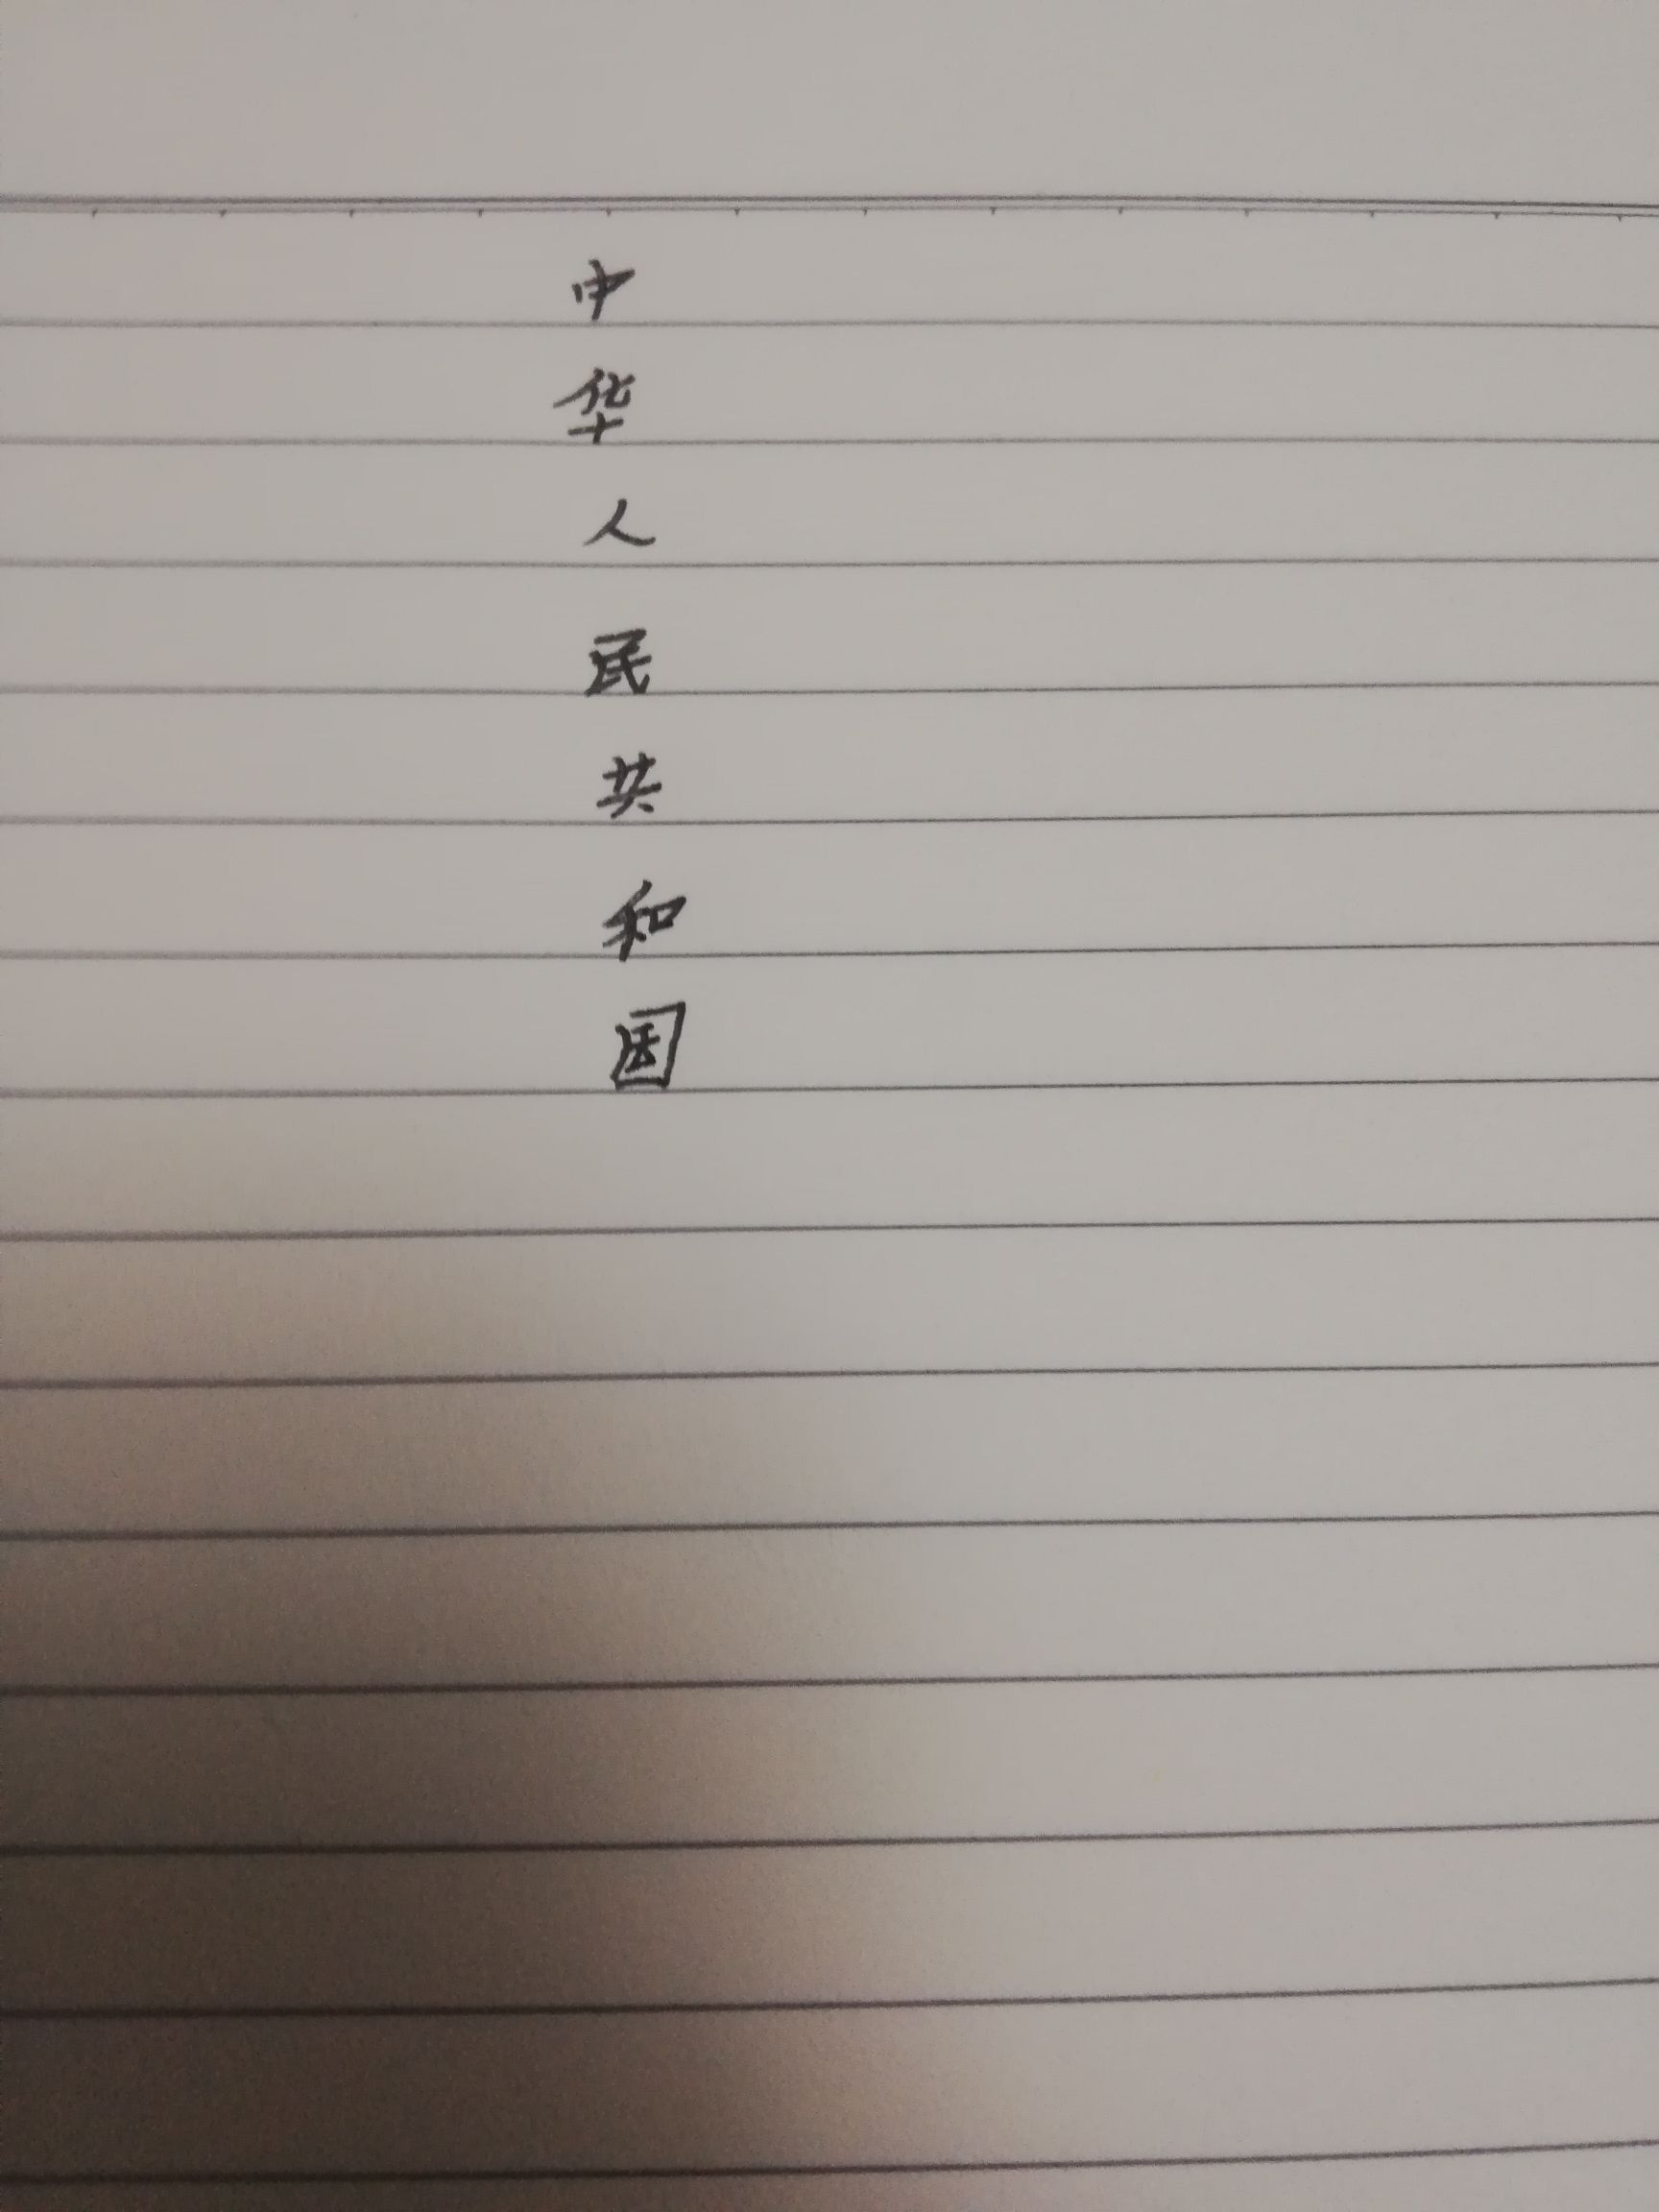 中
华
人
民
共
和
国